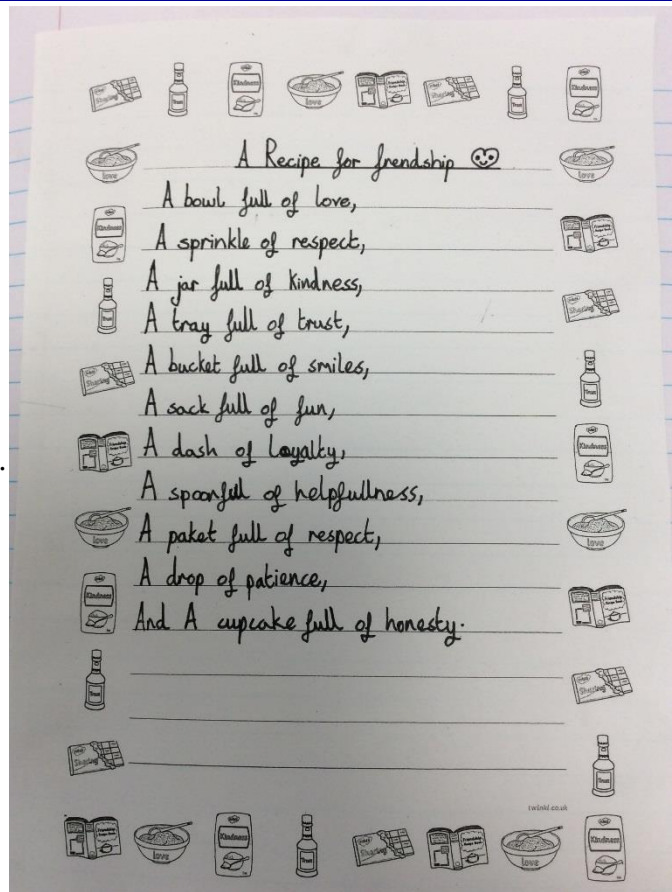 A Recipe for frendship
A bowl full of love,
A sprinkle of respect,
A jar full of kindness,
A tray full of trust,
A bucket full of smiles,
A sack full of fun,
A dash of Loyalty,
A spoonfull of helpfullness,
A paket full of respect,
A drop of patience,
And A cupcake full of honesty.
twinkl.co.uk
Sharing
Trust
Kindness
love
Friendship Recipe Book